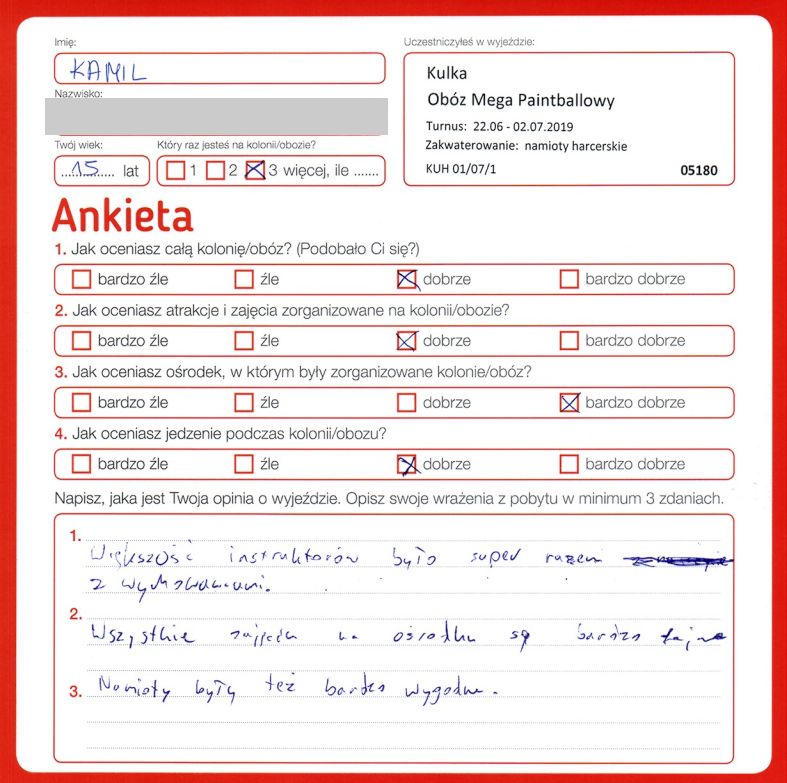 Imię:
KAMIL
Nazwisko:
Twój wiek:
15 lat
Który raz jesteś na kolonii/obozie?
1 2 3 więcej, ile .......
Uczestniczyłeś w wyjeździe:
Kulka
Obóz Mega Paintballowy
Turnus: 22.06 - 02.07.2019
Zakwaterowanie: namioty harcerskie
KUH 01/07/1 05180
Ankieta
1. Jak oceniasz całą kolonię/obóz? (Podobało Ci się?)
bardzo źle źle dobrze bardzo dobrze
2. Jak oceniasz atrakcje i zajęcia zorganizowane na kolonii/obozie?
bardzo źle źle dobrze bardzo dobrze
3. Jak oceniasz ośrodek, w którym były zorganizowane kolonie/obóz?
bardzo źle źle dobrze bardzo dobrze
4. Jak oceniasz jedzenie podczas kolonii/obozu?
bardzo źle źle dobrze bardzo dobrze
Napisz, jaka jest Twoja opinia o wyjeździe. Opisz swoje wrażenia z pobytu w minimum 3 zdaniach.
1. Większość instruktorów było super razem
z wychowawcami.
2. Wszystkie zajęcia na ośrodku są bardzo fajne
3. Namioty były też bardzo wygodne.